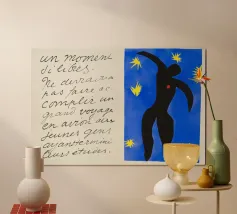 un moment
di libres.
Ne devrait-on
pas faire ac
complir un
grand voyage
en avion aux
jeunes gens
ayant terminé
leurs études.